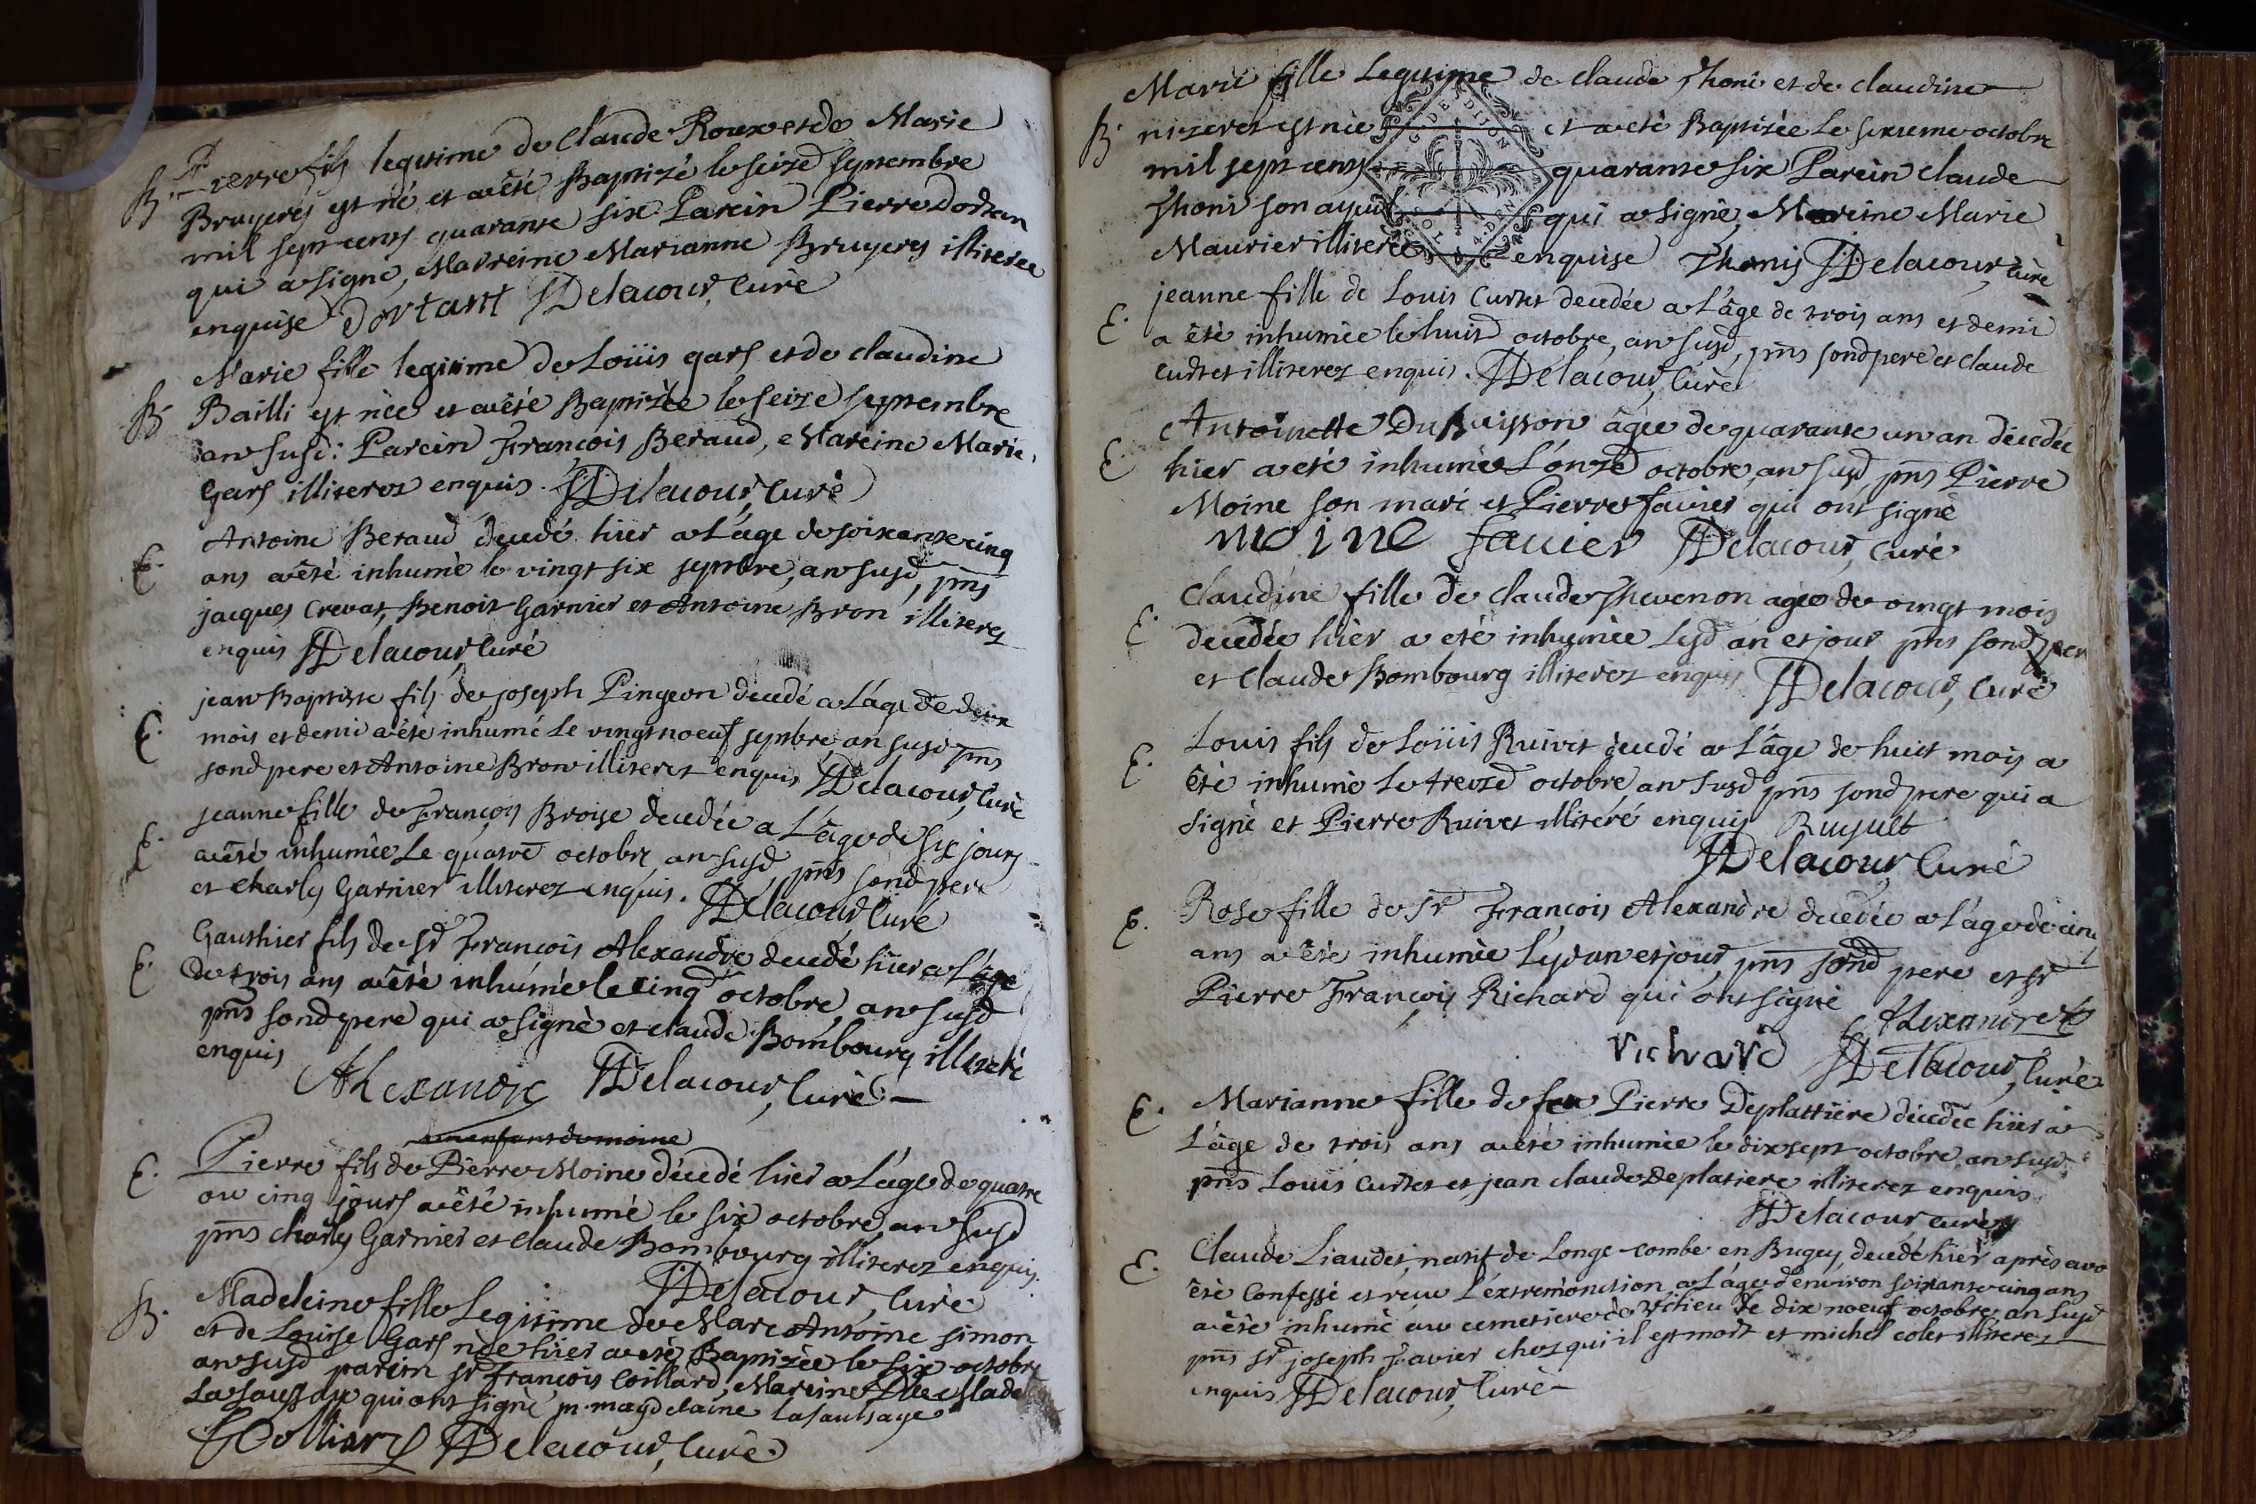 B. Pierre fils legitime de Claude Roux et de Marie
Bruyeres est né et a été Baptizé le seize septembre
mil sept cents quarante six Parein Pierre Dodtan
qui a signé, Marreine Marianne Bruyeres illiteree
enquise Dortant Delacour, Curé
Marie fille legitime de Loüis gars et de claudine
B. Bailli est née et a été Baptizée le seize septembre
an susd: Parein Francois Beraud, Mareine Marie
Gars illiterez enquis. Delacour, Curé
Antoine Beraud decedé hier a L'age de soixante cinq
E. ans a été inhumé le vingt six septbre, an susd, pns
jacques Crevat, Benoit Garnier et Antoine Bron illiterez
enquis Delacour, Curé
jean Baptiste fils de joseph Pingeon decedé a L'age de deux
E. mois et demi a été inhumé Le vingt noeuf septbre an susd pns
sond pere et Antoine Bron illiterez enquis Delacour, Curé
jeanne fille de François Broise decedée a L'age de six jours
E. a été inhumée Le quatre octobre an susd, pns sond pere
et Charles Garnier illiterez enquis. Delacour, Curé
Gauthier fils de Sr Francois Alexandre decedé hier a L'age
E. de trois ans a été inhumé le cinq octobre, an susd
pns sond pere qui a signé et claude Bombourg illiteré
enquis
Alexandre Delacour, Curé
un enfant du moine
E. Pierre fils de Pierre Moine décedé hier a L'age de quatre
ou cinq jours a été inhumé le six octobre, an susd
pns Charles Garnier et Claude Bombourg illiterez enquis.
Delacour, Curé
B. Madeleine fille Legitime de Marc Antoine Simon
et de Louise Gars née hier a eté Baptizée le six octobre
an susd parein sr François Coillard, Mareine Dlle Madel
La Saussaye qui ont signé m. magdelaine lasaulsaye
Colliard Delacour, Curé.
Marie fille Legitime de Claude Thoni et de Claudine
B. nizeret est née et a eté Baptizée Le sixieme octobre
mil sept cents quarante six Parein Claude
Thoni son ayeul qui a signé, Mareine Marie
Maurier illiterée enquise Thonis Delacour, Curé
G. DE DIJON
SOL 4. DEN
jeanne fille de Louis Curtet decedée a L'âge de trois ans et demi
E. a été inhumée le huit octobre, an susd, pns sond pere et Claude
Curtet illiterez enquis. Delacour, Curé
Antoinette Dubuisson âgée de quarante un an décedée
E. hier a eté inhumée L'onze octobre, an susd, pns Pierre
Moine son mari et Pierre favier qui ont signé
moine favier Delacour, Curé
Claudine fille de Claude Thevenon agée de vingt mois
E. decedée hier a eté inhumée Lesd an et jour pns sond pere
et Claude Bombourg illiterez enquis Delacour, Curé
Louis fils de Loüis Ruivet decedé a L'âge de huit mois a
E. été inhumé Le treize octobre an susd pns sond pere qui a
signé et Pierre Ruivet illitéré enquis Ruyuet
Delacour, Curé
Rose fille de Sr François Alexandre decedée a L'age de cinq
E. ans a été inhumée Lesd an et jour, pns sond pere et Sr
Pierre François Richard qui ont signé
Alexandre
richard Delacour, Curé
Marianne fille de feu Pierre Deplattiere décedée hier a
E. L'âge de trois ans a eté inhumée le dix sept octobre, an susd
pns Louis Curtet et jean claude Deplatiere illiterez enquis
Delacour, curé
Claude Liaudet, natif de Longe-combe en Bugey, decedé hier après avo
E. été Confessé et recu L'extrêmonction, a L'age d'environ soixante cinq ans
a été inhumé au cemetiere de ce lieu le dix noeuf octobre an susd
pns sr joseph Favier chez qui il est mort et michel colet illiterez
enquis Delacour, Curé